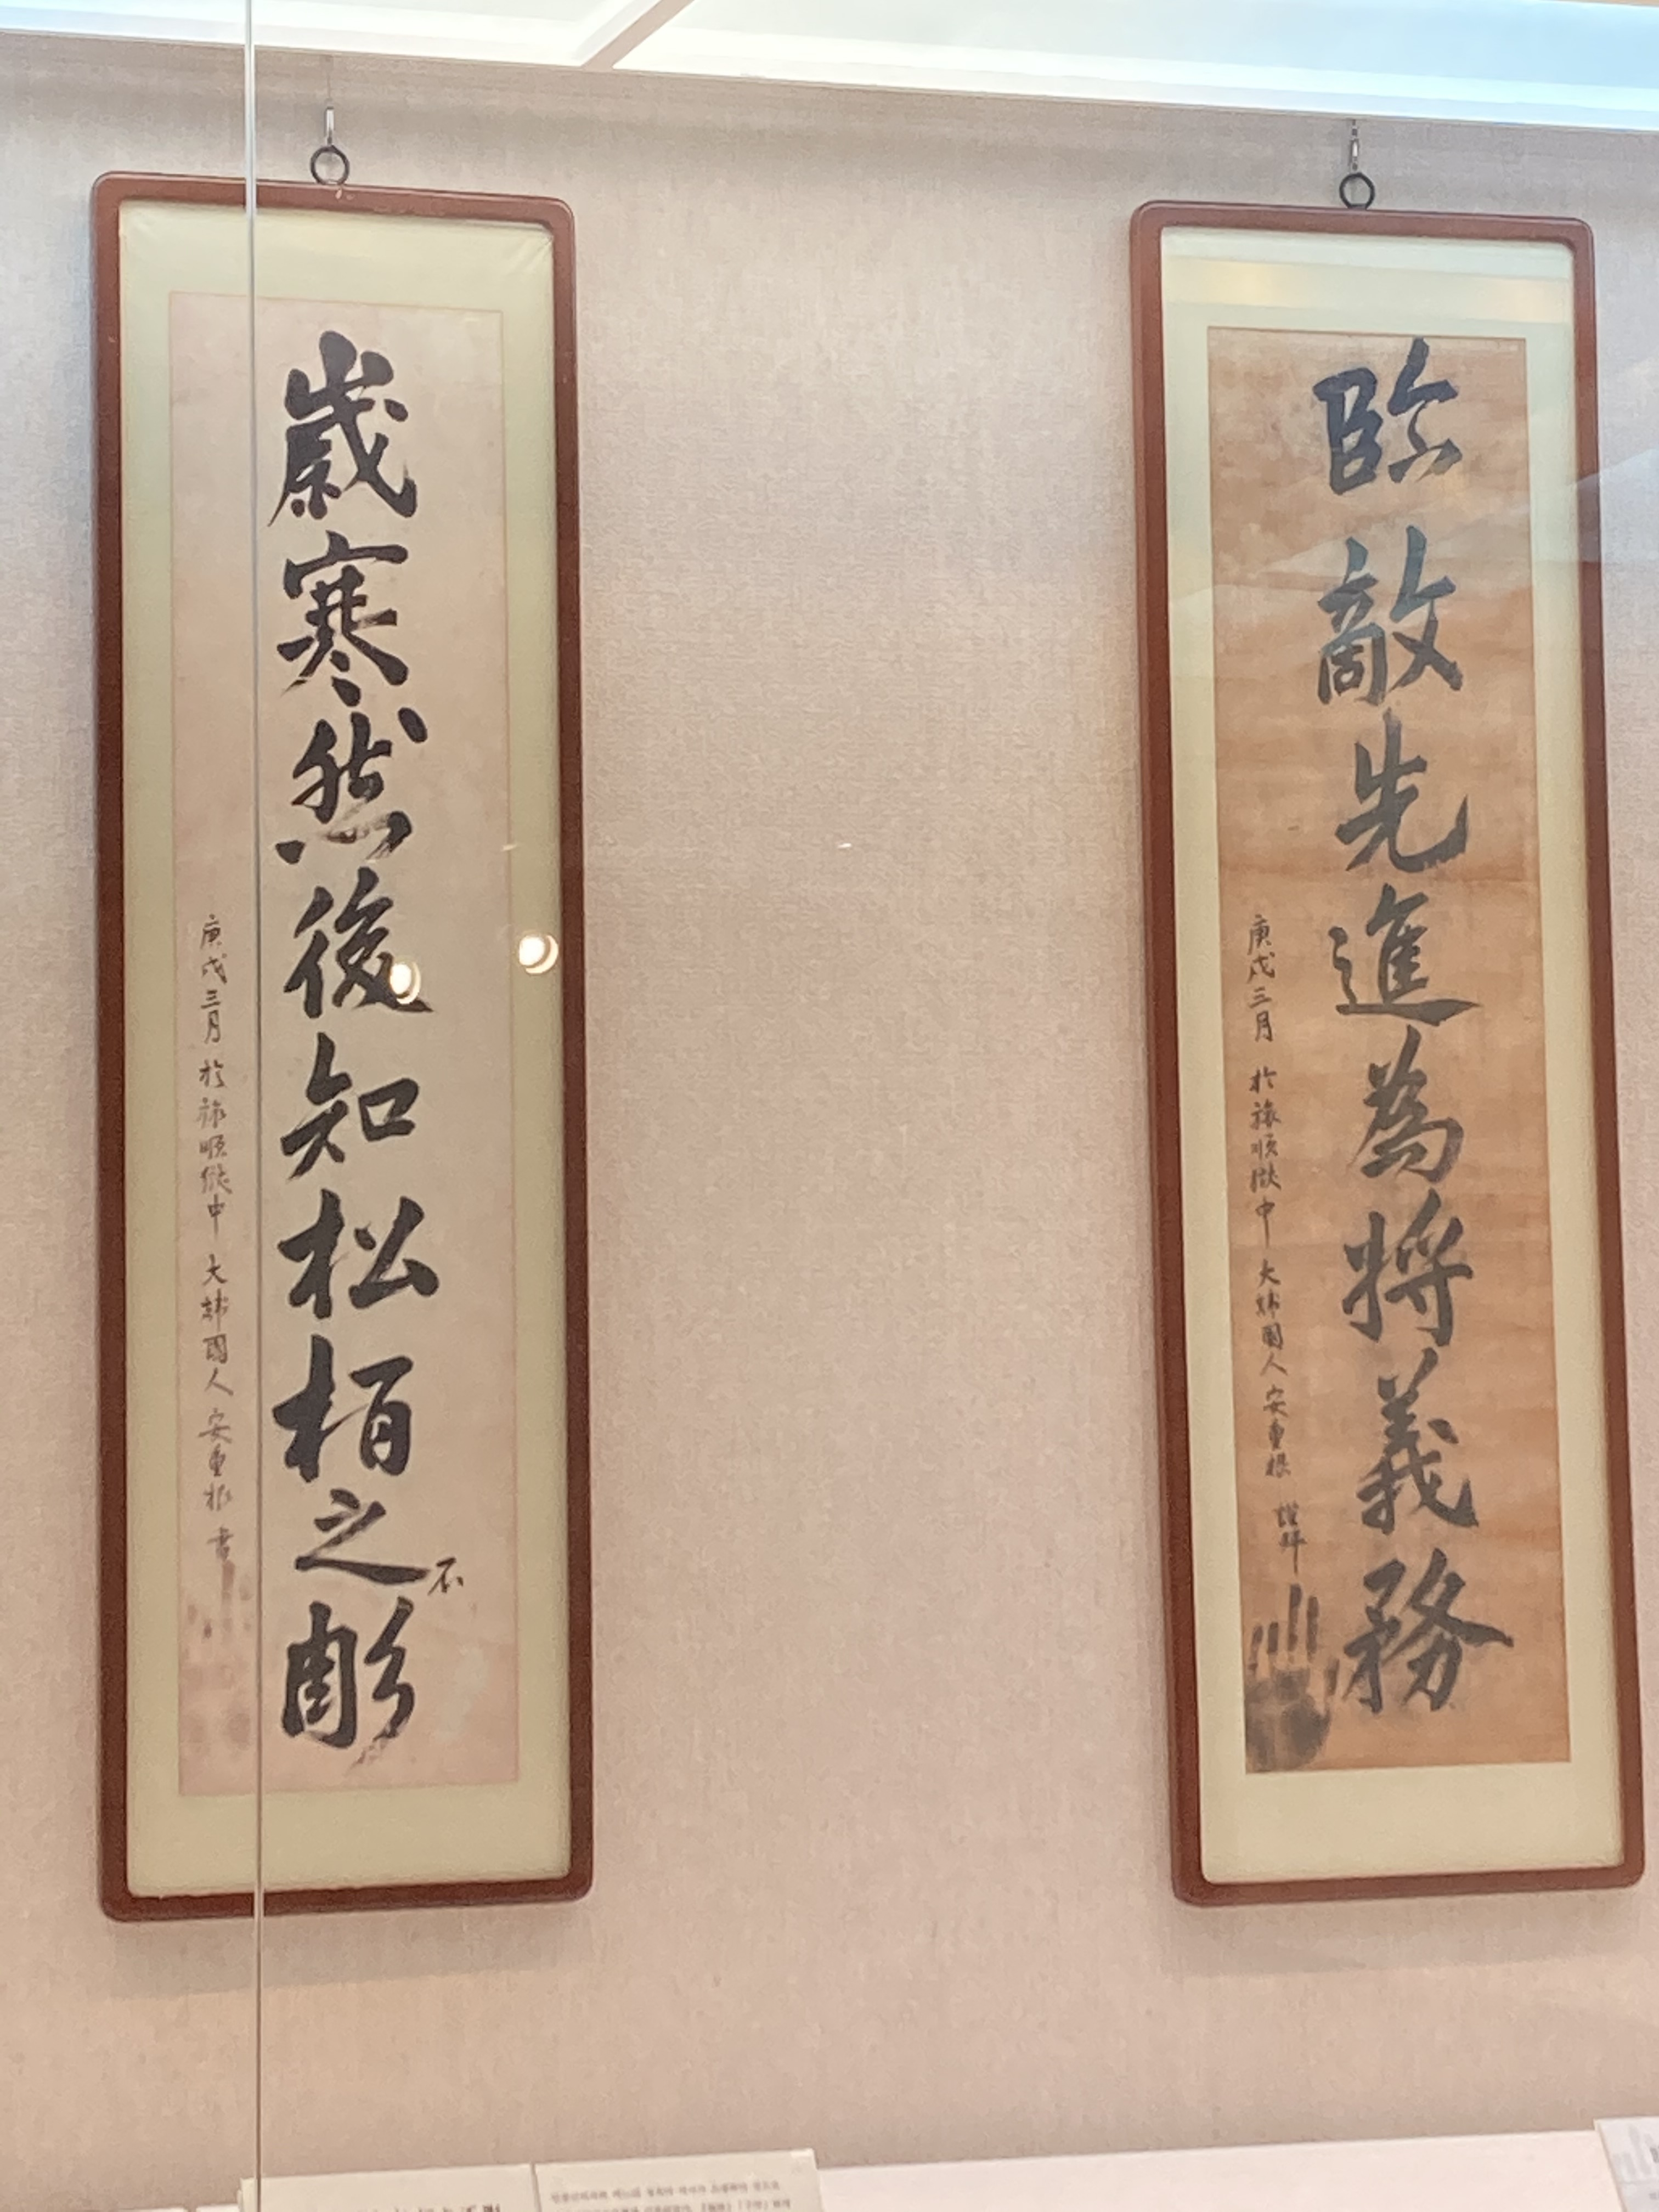 臨敵先進為將義務
庚戌三月 於旅順獄中 大韓國人 安重根 謹拜
歲寒然後知松栢之不彫
庚戌三月 於旅順獄中 大韓國人 安重根 書